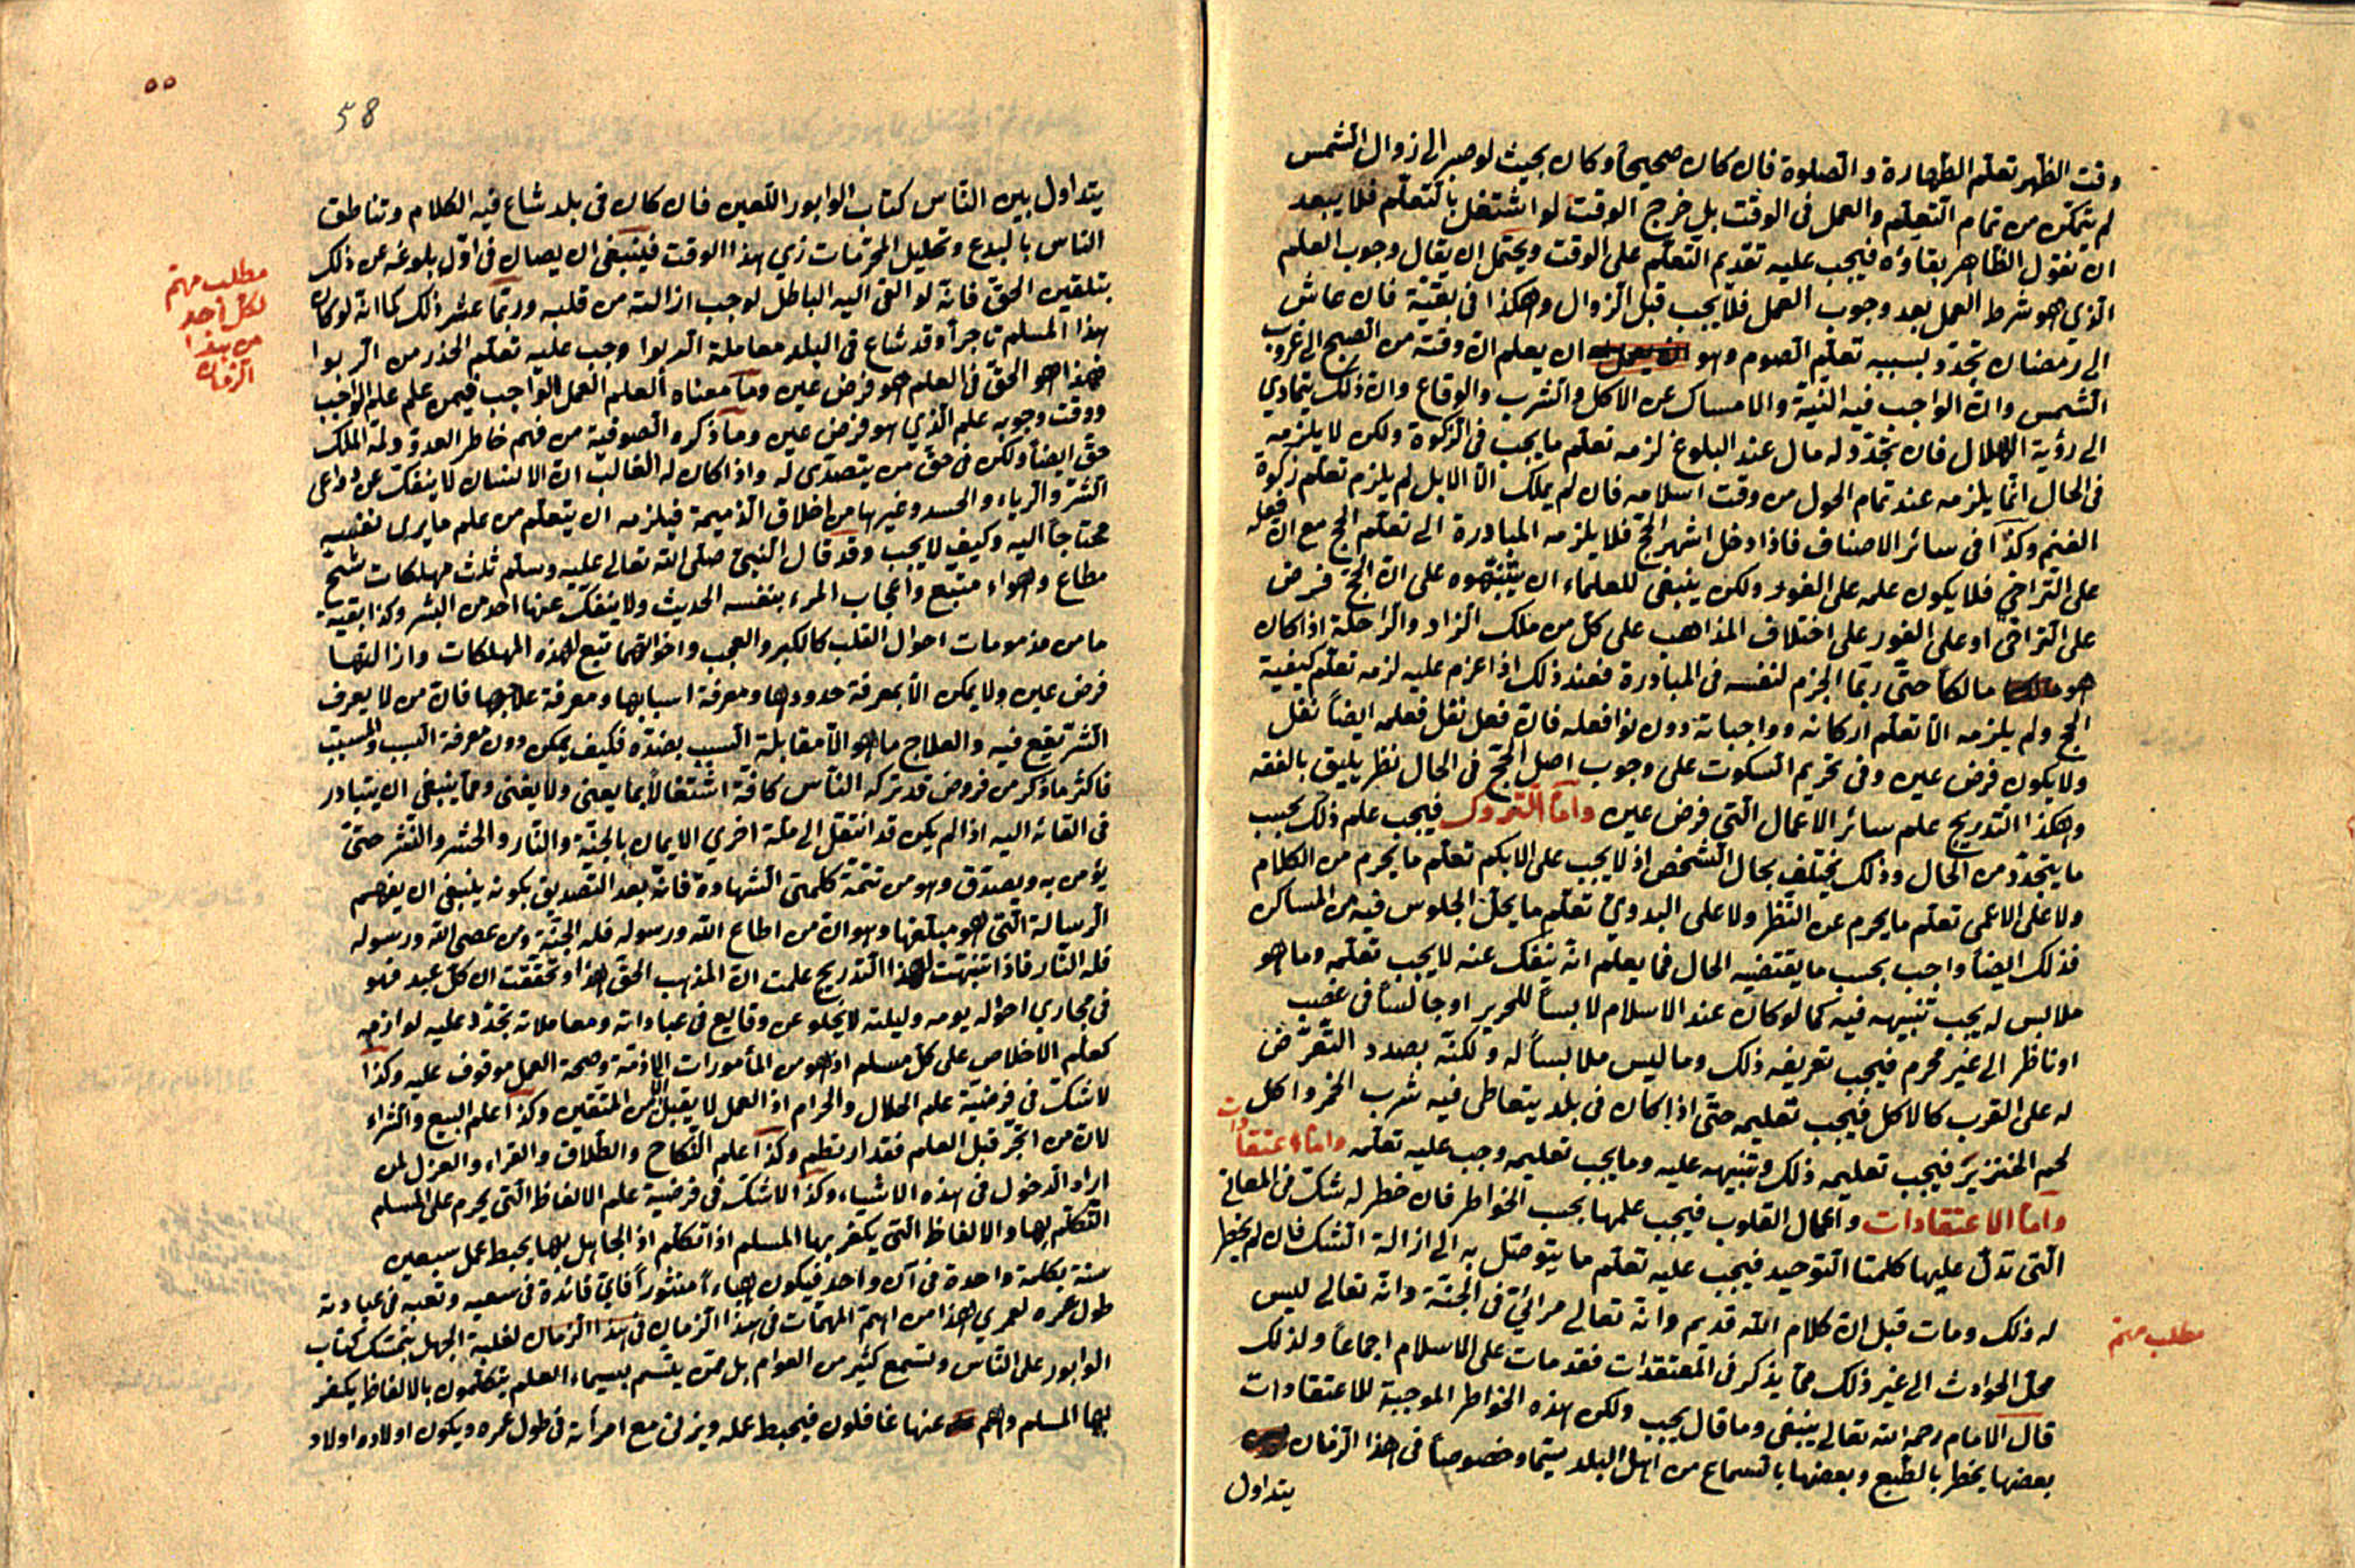 وقت الظهر تعلم الطهارة والصلوة فان كان صحيحاً وكان بحيث لو صبر الى زوال الشمس
لم يتمكن من تمام التعلم والعمل فى الوقت بل خرج الوقت لو اشتغل بالتعلم فلا يبعد
ان نقول الظاهر بقاؤه فيجب عليه تقديم التعلم على الوقت ويحتمل ان يقال وجوب العلم
الذي هو شرط العمل بعد وجوب العمل فلا يجب قبل الزوال وهكذا فى بقية فان عاش
الى رمضان تجدد بسببه تعلم الصوم وهو ان يعلم ان وقته من الصبح الى غروب
الشمس وان الواجب فيه النية والامساك عن الاكل والشرب والوقاع وان ذلك يتمادي
الى رؤية الهلال فان تجدد له مال عند البلوغ لزمه تعلم ما يجب فى الزكوة ولكن لا يلزمه
فى الحال انما يلزمه عند تمام الحول من وقت اسلامه فان لم يملك الا الابل لم يلزم تعلم زكوة
الغنم وكذا فى سائر الاصناف فاذا دخل اشهر الحج فلا يلزمه المبادرة الى تعلم الحج مع ان فعله
على التراخي فلا يكون علمه على الفور ولكن ينبغى للعلماء ان ينبهوه على ان الحج فرض
على التراخي او على الفور على اختلاف المذاهب على كل من ملك الزاد والراحلة اذا كان
هو مالكا حتى ربما الجزم لنفسه فى المبادرة فعند ذلك اذا عزم عليه لزمه تعلم كيفية
الحج ولم يلزمه الا تعلم اركانه وواجباته دون نوافعله فان فعل نفل فعلمه ايضاً نفل
ولا يكون فرض عين وفى تحريم السكوت على وجوب اصل الحج فى الحال نظر يليق بالفقه
وهكذا التدريج علم سائر الاعمال التي فرض عين واما التروك فيجب علم ذلك بحسب
ما يتجدد من الحال وذلك يختلف بحال الشخص اذ لا يجب على الابكم تعلم ما يحرم من الكلام
ولا على الاعمى تعلم ما يحرم عن النظر ولا على البدوي تعلم ما يحل الجلوس فيه من المساكن
فذلك ايضاً واجب بحسب ما يقتضيه الحال فما يعلم انه ينفك عنه لا يجب تعلمه وما هو
ملابس له يجب تنبيهه فيه كما لو كان عند الاسلام لابساً للحرير او جالساً فى غصب
او ناظر الى غير محرم فيجب تعريفه ذلك وما ليس ملابساً له ولكنه بصدد التعرض
له على القرب كالاكل فيجب تعليمه حتى اذا كان فى بلد يتعاطى فيه شرب الخمر واكل
لحم الخنزير فيجب تعليمه ذلك وتنبيهه عليه وما يجب تعليمه وجب عليه تعلمه واما اعتقادات
واما الاعتقادات واعمال القلوب فيجب علمها بحسب الخواطر فان خطر له شك فى المعاني
التى تدل عليها كلمتا التوحيد فيجب عليه تعلم ما يتوصل به الى ازالة الشك فان لم يخطر
له ذلك ومات قبل ان كلام الله قديم وانه تعالى مرائي فى الجنة وانه تعالى ليس
محل الحوادث الى غير ذلك مما يذكر فى المعتقدات فقد مات على الاسلام اجماعاً ولذلك
قال الامام رحمه الله تعالى ينبغى وما قال يجب ولكن هذه الخواطر الموجبة للاعتقادات
بعضها يخطر بالطبع وبعضها بالسماع من اهل البلد سيما وخصوصاً فى هذا الزمان
يتداول
مطلب مهم
٥٥
58
يتداول بين الناس كتاب الوابور اللعين فان كان فى بلد شاع فيه الكلام وتناطق
الناس بالبدع وتحليل المحرمات زي هذا الوقت فينبغى ان يصان فى اول بلوغه عن ذلك
بتلقين الحق فانه لو القى اليه الباطل لوجب ازالته من قلبه وربما عشر ذلك كما انه لو كان
هذا المسلم تاجراً وقد شاع فى البلد معاملة الربوا وجب عليه تعلم الحذر من الربوا
فهذا هو الحق فى العلم هو فرض عين وما معناه العلم العمل الواجب فيمن علم علم الواجب
ووقت وجوبه علم الذي هو فرض عين وما ذكره الصوفية من فهم خاطر العدو ولمة الملك
حق ايضاً ولكن فى حق من يتصدى له واذا كان له الغالب ان الانسان لا ينفك عن دواعى
الشر والرياء والحسد وغيرها من اخلاق الذميمة فيلزمه ان يتعلم من علم ما يرى نفسه
محتاجاً اليه وكيف لا يجب وقد قال النبى صلى الله تعالى عليه وسلم ثلث مهلكات شح
مطاع وهواء متبع واعجاب المرء بنفسه الحديث ولا ينفك عنها احد من البشر وكذا بقية
ما من مذمومات احوال القلب كالكبر والعجب واخواتهما تبع لهذه المهلكات وازالتها
فرض عين ولا يمكن الا بمعرفة حدودها ومعرفة اسبابها ومعرفة علاجها فان من لا يعرف
الشر يقع فيه والعلاج ما هو الا مقابلة السبب بضده فكيف يمكن دون معرفة السبب والمسبب
فاكثر ما ذكر من فروض قد تركه الناس كافة اشتغالاً بما يعنى ولا يغنى ومما ينبغى ان يتبادر
فى القائه اليه اذا لم يكن قد انتقل الى ملة اخري الايمان بالجنة والنار والحشر والنشر حتى
يؤمن به ويصدق وهو من تتمة كلمتى الشهادة فانه بعد التصديق بكونه ينبغى ان يفهم
الرسالة التى هو مبلغها وهو ان من اطاع الله ورسوله فله الجنة ومن عصى الله ورسوله
فله النار فاذا تنبهت لهذا التدريج علمت ان المذهب الحق هذا وتحققت ان كل عبد فهو
فى مجاري احواله يومه وليلته لا يخلو عن وقايع فى عباداته ومعاملاته تجدد عليه لوازمه
كعلم الاخلاص على كل مسلم اذ هو من المأمورات اللازمة وصحة العمل موقوف عليه وكذا
لا شك فى فرضية علم الحلال والحرام اذ العمل لا يقبل الا من المتقين وكذا علم البيع والشراء
لان من اتجر قبل العلم فقد ارتطم وكذا علم النكاح والطلاق والقراء والعزل لمن
اراد الدخول فى هذه الاشياء وكذا لا شك فى فرضية علم الالفاظ التى يحرم على المسلم
التكلم بها والالفاظ التى يكفر بها المسلم اذا تكلم اذ الجاهل بها يحبط عمل سبعين
سنة بكلمة واحدة فى آن واحد فيكون هباءً منثوراً فاي فائدة فى سعيه وتعبه فى عبادته
طول عمره لعمري هذا من اهم المهمات فى هذا الزمان فى هذا الزمان لغلبة الجهل بتمسك كتاب
الوابور على الناس وتسمع كثير من العوام بل ممن يتسم بسيماء العلم يتكلمون بالالفاظ يكفر
بها المسلم وهم عنها غافلون فيحبط عمله ويزنى مع امرأته فى طول عمره ويكون اولاده اولاد
مطلب مهم
لكل أحد
من هذا
الزمان